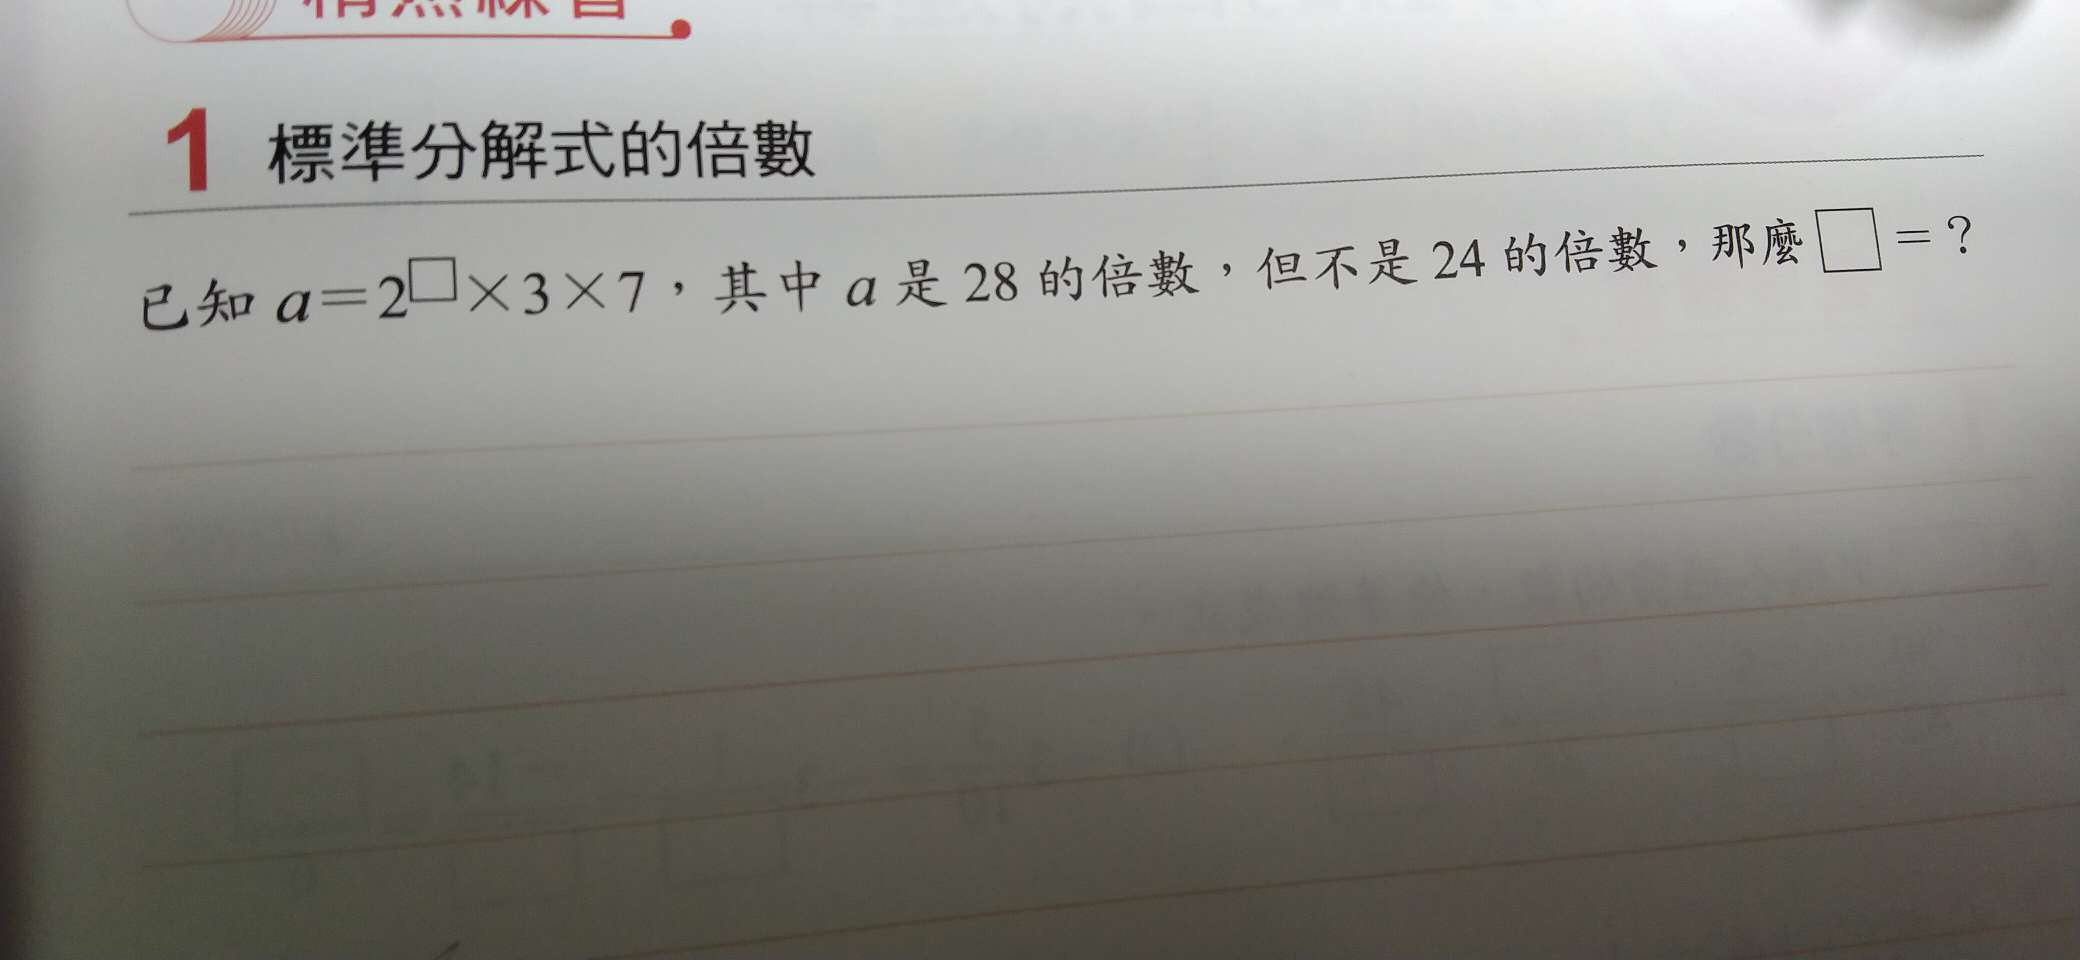 精熟練習
1 標準分解式的倍數
已知 a=2□×3×7，其中 a 是 28 的倍數，但不是 24 的倍數，那麼□=？